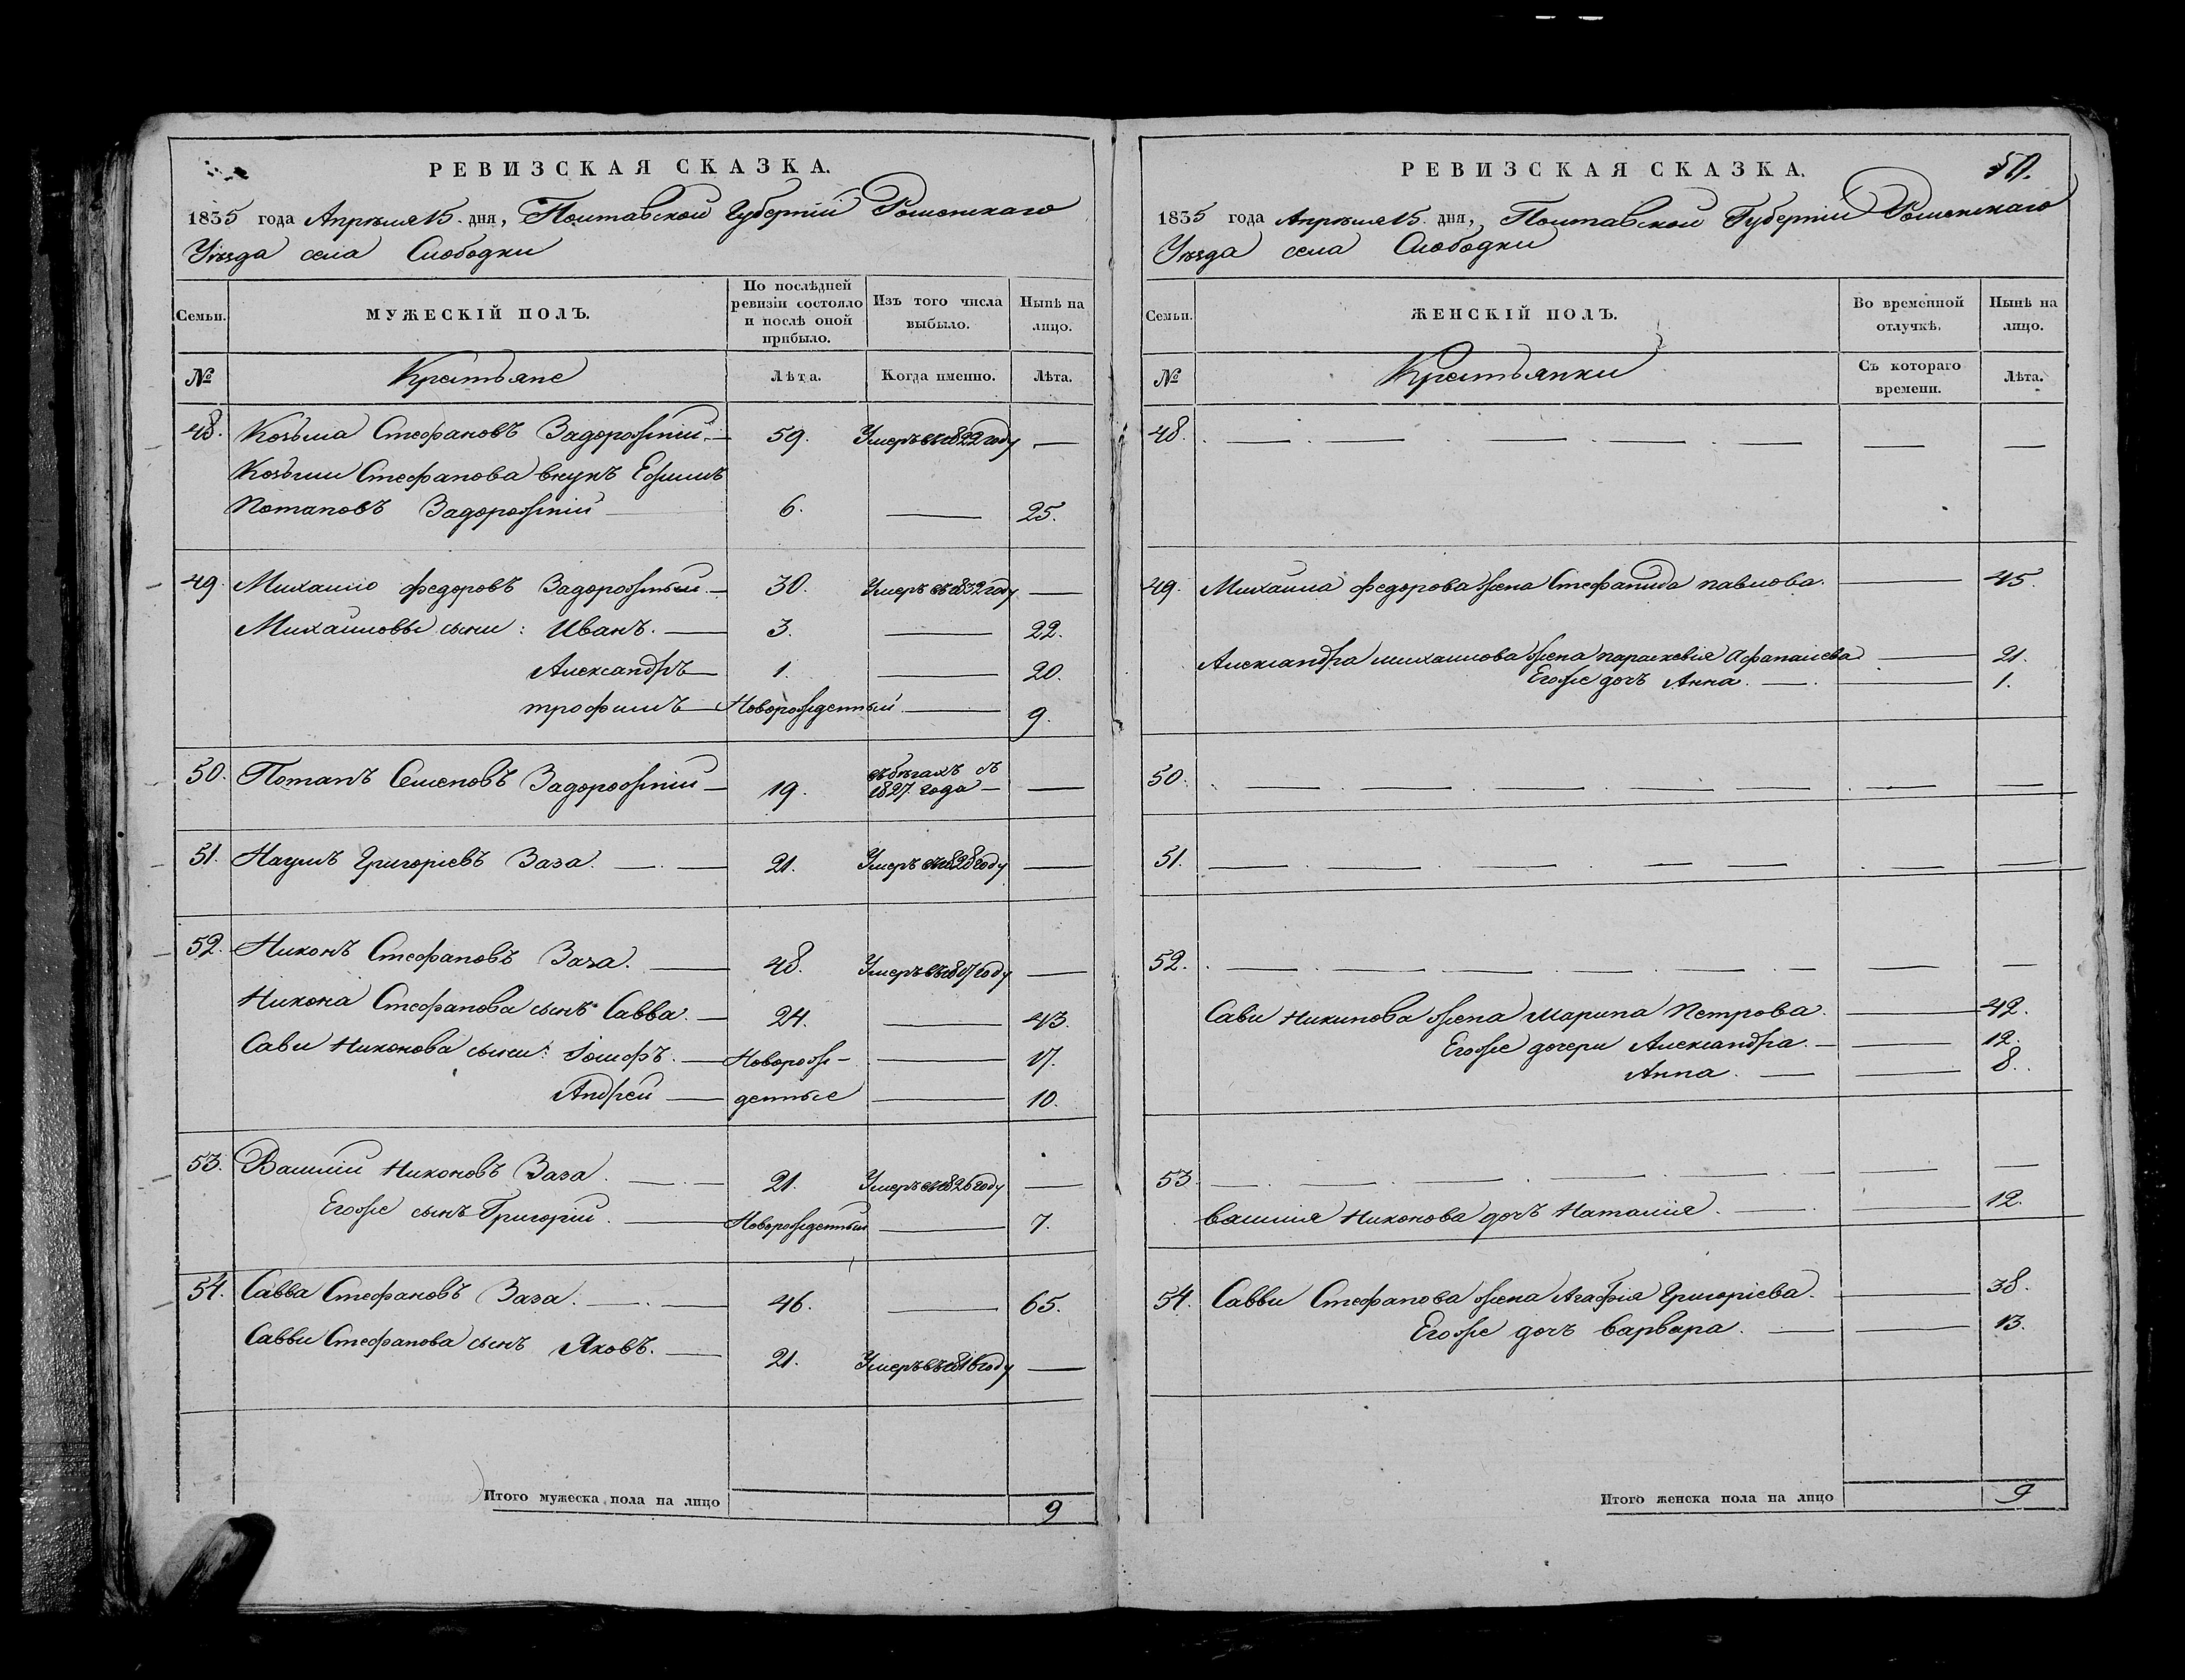 РЕВИЗСКАЯ СКАЗКА.
1835 года Апрѣля 15. дня, Полтавской Губерніи Роменскаго
Уѣзда села Слободки
Семьи.
МУЖЕСКІЙ ПОЛЪ.
По послѣдней ревизіи состояло и послѣ оной прибыло.
Изъ того числа выбыло.
Нынѣ на лицо.
№ Крестьяне Лѣта. Когда именно. Лѣта.
48. Козьма Стефановъ Задорожній. — 59. Умеръ въ 1822 году —
Козьми Стефанова внукъ Ефимъ
Потаповъ Задорожній 6. — 25.
49. Михайло Федоровъ Задорожный. — 30. Умеръ въ 1832 году —
Михайловы сыны: Иванъ. — 3. — 22.
Александръ — 1. — 20.
трофимъ — Новорожденный. — 9.
50. Потапъ Семеновъ Задорожній — 19. въ бѣгахъ съ
1827. года — —
51. Наумъ Григоріевъ Заза. — . — 21. Умеръ въ 1828 году —
52. Никонъ Стефановъ Заза. — 48. Умеръ въ 1817 году —
Никона Стефанова сынъ Савва. — 24. — 43.
Сави Никонова сыны: Іосифъ. — Новорож- — 17.
Андрей — денные — 10.
53. Василій Никоновъ Заза. — . — 21. Умеръ въ 1826 году —
Егоже сынъ Григорій. — Новорожденный — 7.
54. Савва Стефановъ Заза. — .. — 46. — 65.
Савви Стефанова сынъ Яковъ. — 21. Умеръ въ 1816 году —
Итого мужеска пола на лицо 9
РЕВИЗСКАЯ СКАЗКА. 50.
1835 года Апрѣля 15. дня, Полтавской Губерніи Роменскаго
Уѣзда села Слободки
Семьи.
ЖЕНСКІЙ ПОЛЪ.
Во временной отлучкѣ.
Нынѣ на лицо.
№ Крестьянки Съ котораго времени. Лѣта.
48. — — —
49. Михайла Федорова жена Стефанида павлова. — 45.
Александра михайлова жена параскевія Афанасіева — 21.
Егоже дочь Анна. — . — 1.
50. — — —
51. — — —
52. — — —
Сави Никинова жена Марина Петрова. — 42.
Егоже дочери Александра. — — 12.
Анна. — — 8.
53. — — —
василія Никонова дочь Наталія. — . — 12.
54. Савви Стефанова жена Агафия Григоріева. — 38.
Егоже дочь варвара. — — 13.
Итого женска пола на лицо 9